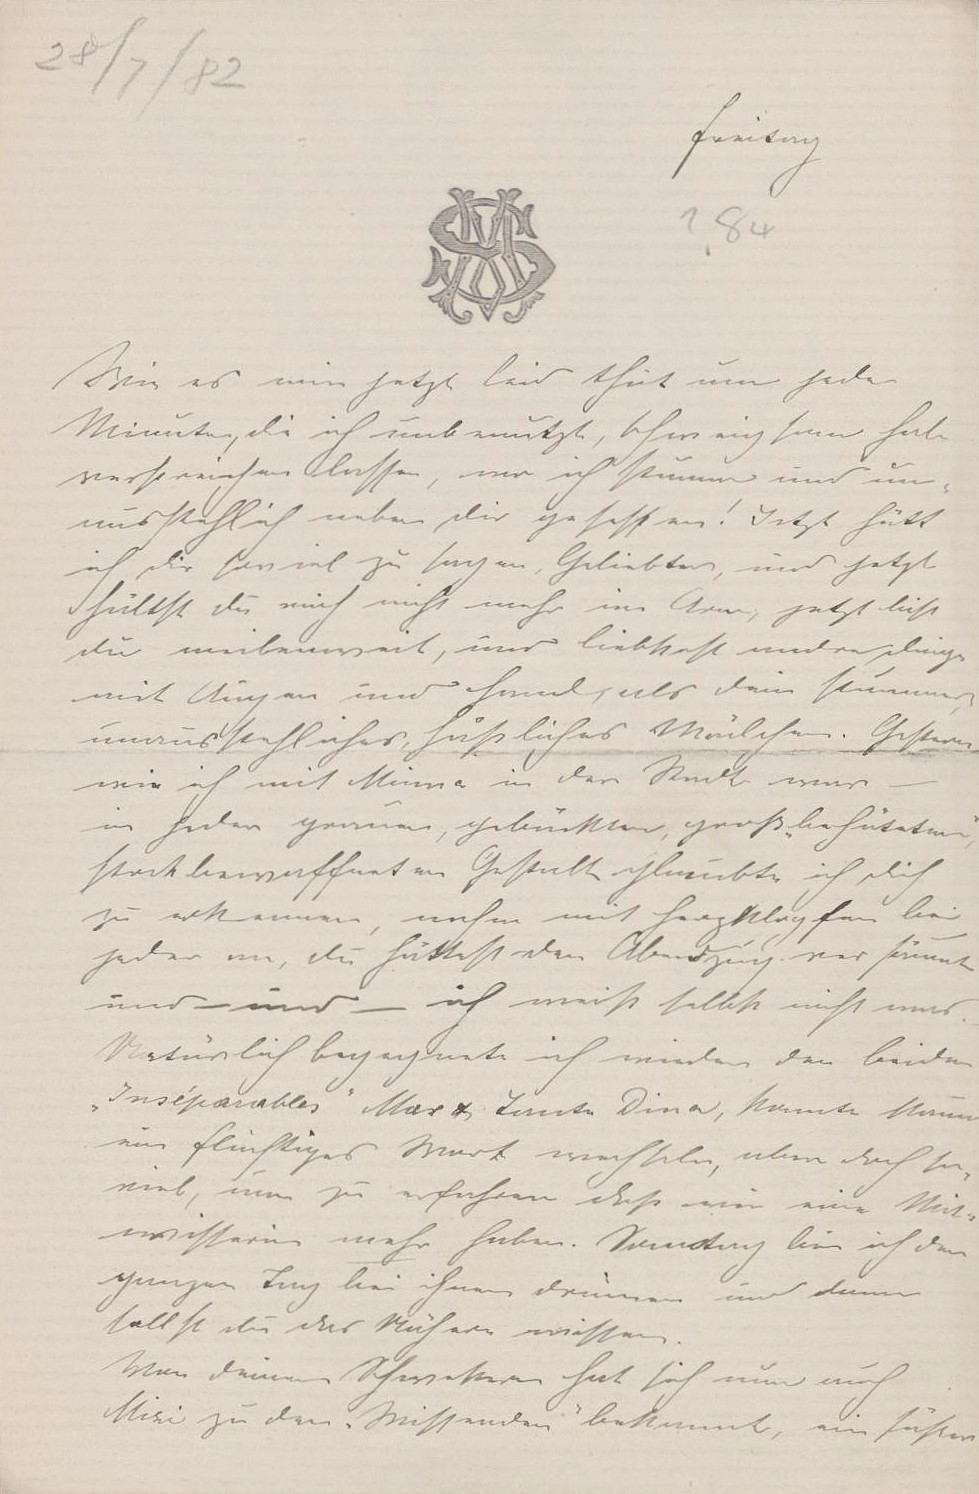 28/7/82
Freitag
?84
Wie es mir jetzt leid thut um jede
Minute, die ich unbenutzt, schweigsam habe
verstreichen lassen, wo ich stumm und un-
ausstehlich neben dir gesessen! Jetzt hätt
ich dir soviel zu sagen, Geliebter, und jetzt
hältst du mich nicht mehr im Arm, jetzt bist
du meilenweit, und liebkost andre Dinge
mit Augen und Hand, als dein stummes,
unausstehliches, häßliches Mädchen. Gestern
wie ich mit Minna in der Stadt war —
in jeder grauen, gebückten, groß„behüteten",
stockbewaffneten Gestalt glaubte ich dich
zu erkennen, nahm mit Herzklopfen bei
jeder an, du hättest den Abendzug versäumt
und — und — ich weiß selbst nicht was.
Natürlich begegnete ich wieder den beiden
„Inséparables" Max & Tante Dina, konnte kaum
ein flüchtiges Wort wechseln, aber doch so-
viel, um zu erfahren daß wir eine Mit-
wisserin mehr haben. Sonntag bin ich den
ganzen Tag bei ihnen drinnen und dann
sollst du das Nähere wissen.
Von deinen Schwestern hat sich nun auch
zu den „Wissenden" bekannt, ein